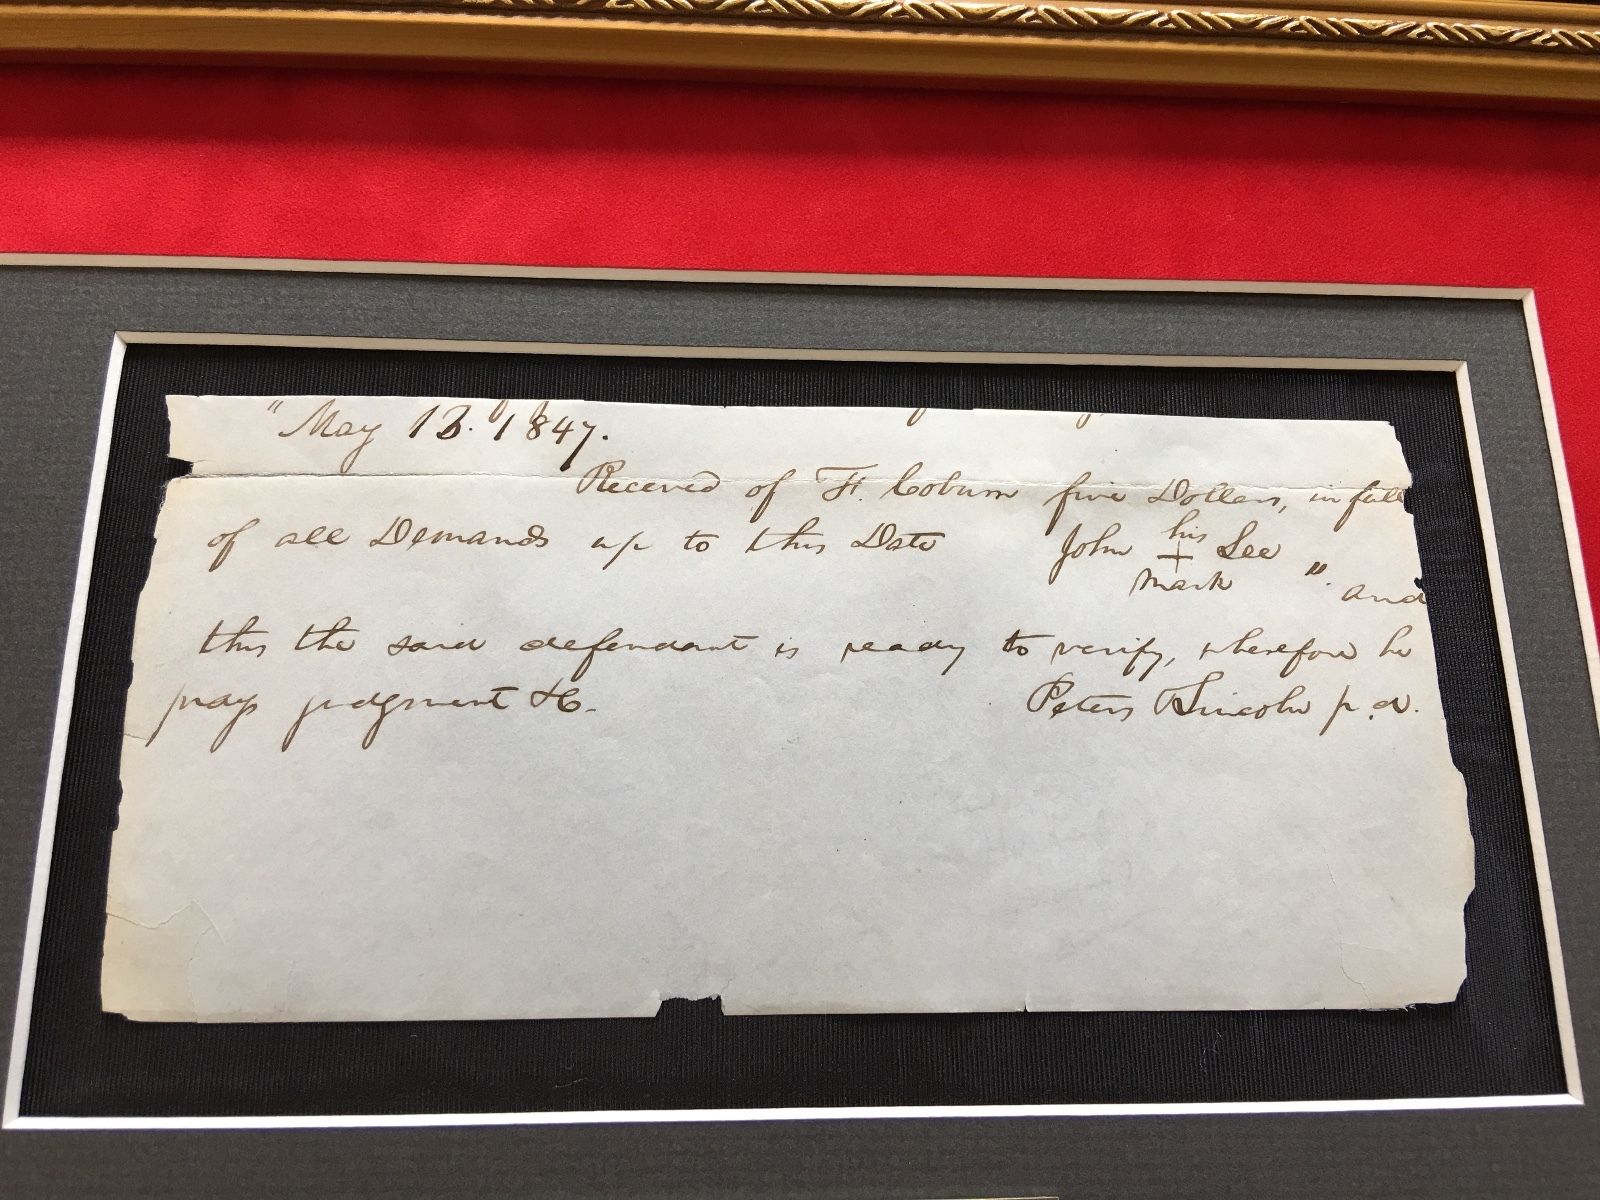 "May 13. 1847.
Received of F. Coburn five Dollars, in full
of all Demands up to this Date John his + Lee
mark " and
this the said defendant is ready to verify, wherefore he
prays judgment &c.
Peters & Lincoln p. d.